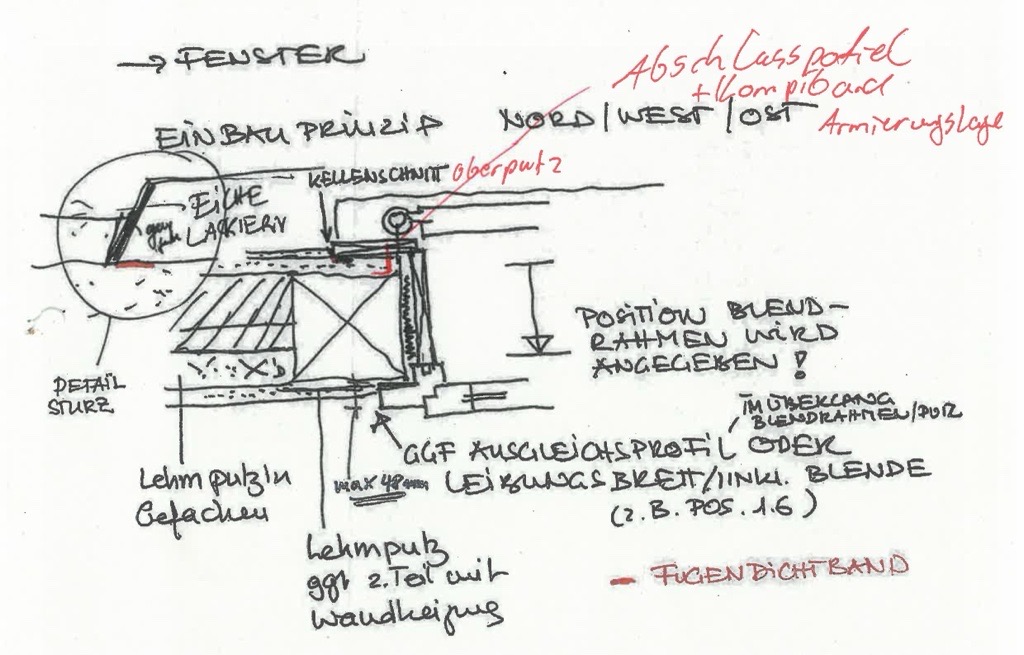 → FENSTER
EINBAUPRINZIP NORD/WEST/OST
Abschlussprofiel
+ Kompiband
Armierungslage
KELLENSCHNITT
Oberputz
EICHE
LACKIERT
DETAIL
STURZ
POSITION BLEND-
RAHMEN WIRD
ANGEGEBEN !
IM ÜBERGANG
BLENDRAHMEN/PUTZ
GGF AUSGLEICHSPROFIL ODER
LEIBUNGSBRETT/INKL. BLENDE
(Z.B. POS. 1.6)
max 48mm
Lehmputz in
Gefachen
Lehmputz
ggf 2. Teil mit
Wandheizung
– FUGENDICHTBAND